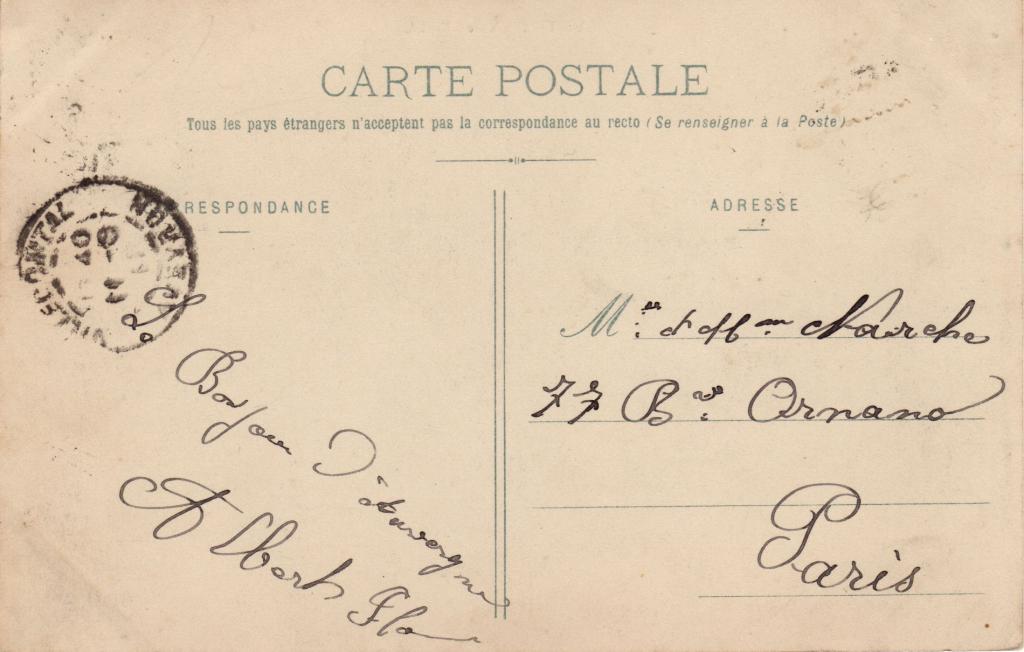 CARTE POSTALE
Tous les pays étrangers n'acceptent pas la correspondance au recto (Se renseigner à la Poste)
RESPONDANCE
ADRESSE
Le
Bonjour D'Auvergne
Albert Flo
Mr. et Mme Narche
77 Bd. Ornano
Paris